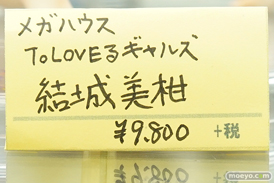 メガハウス
ToLOVEるギャルズ
結城美柑
¥9,800 +税
mueyo.com